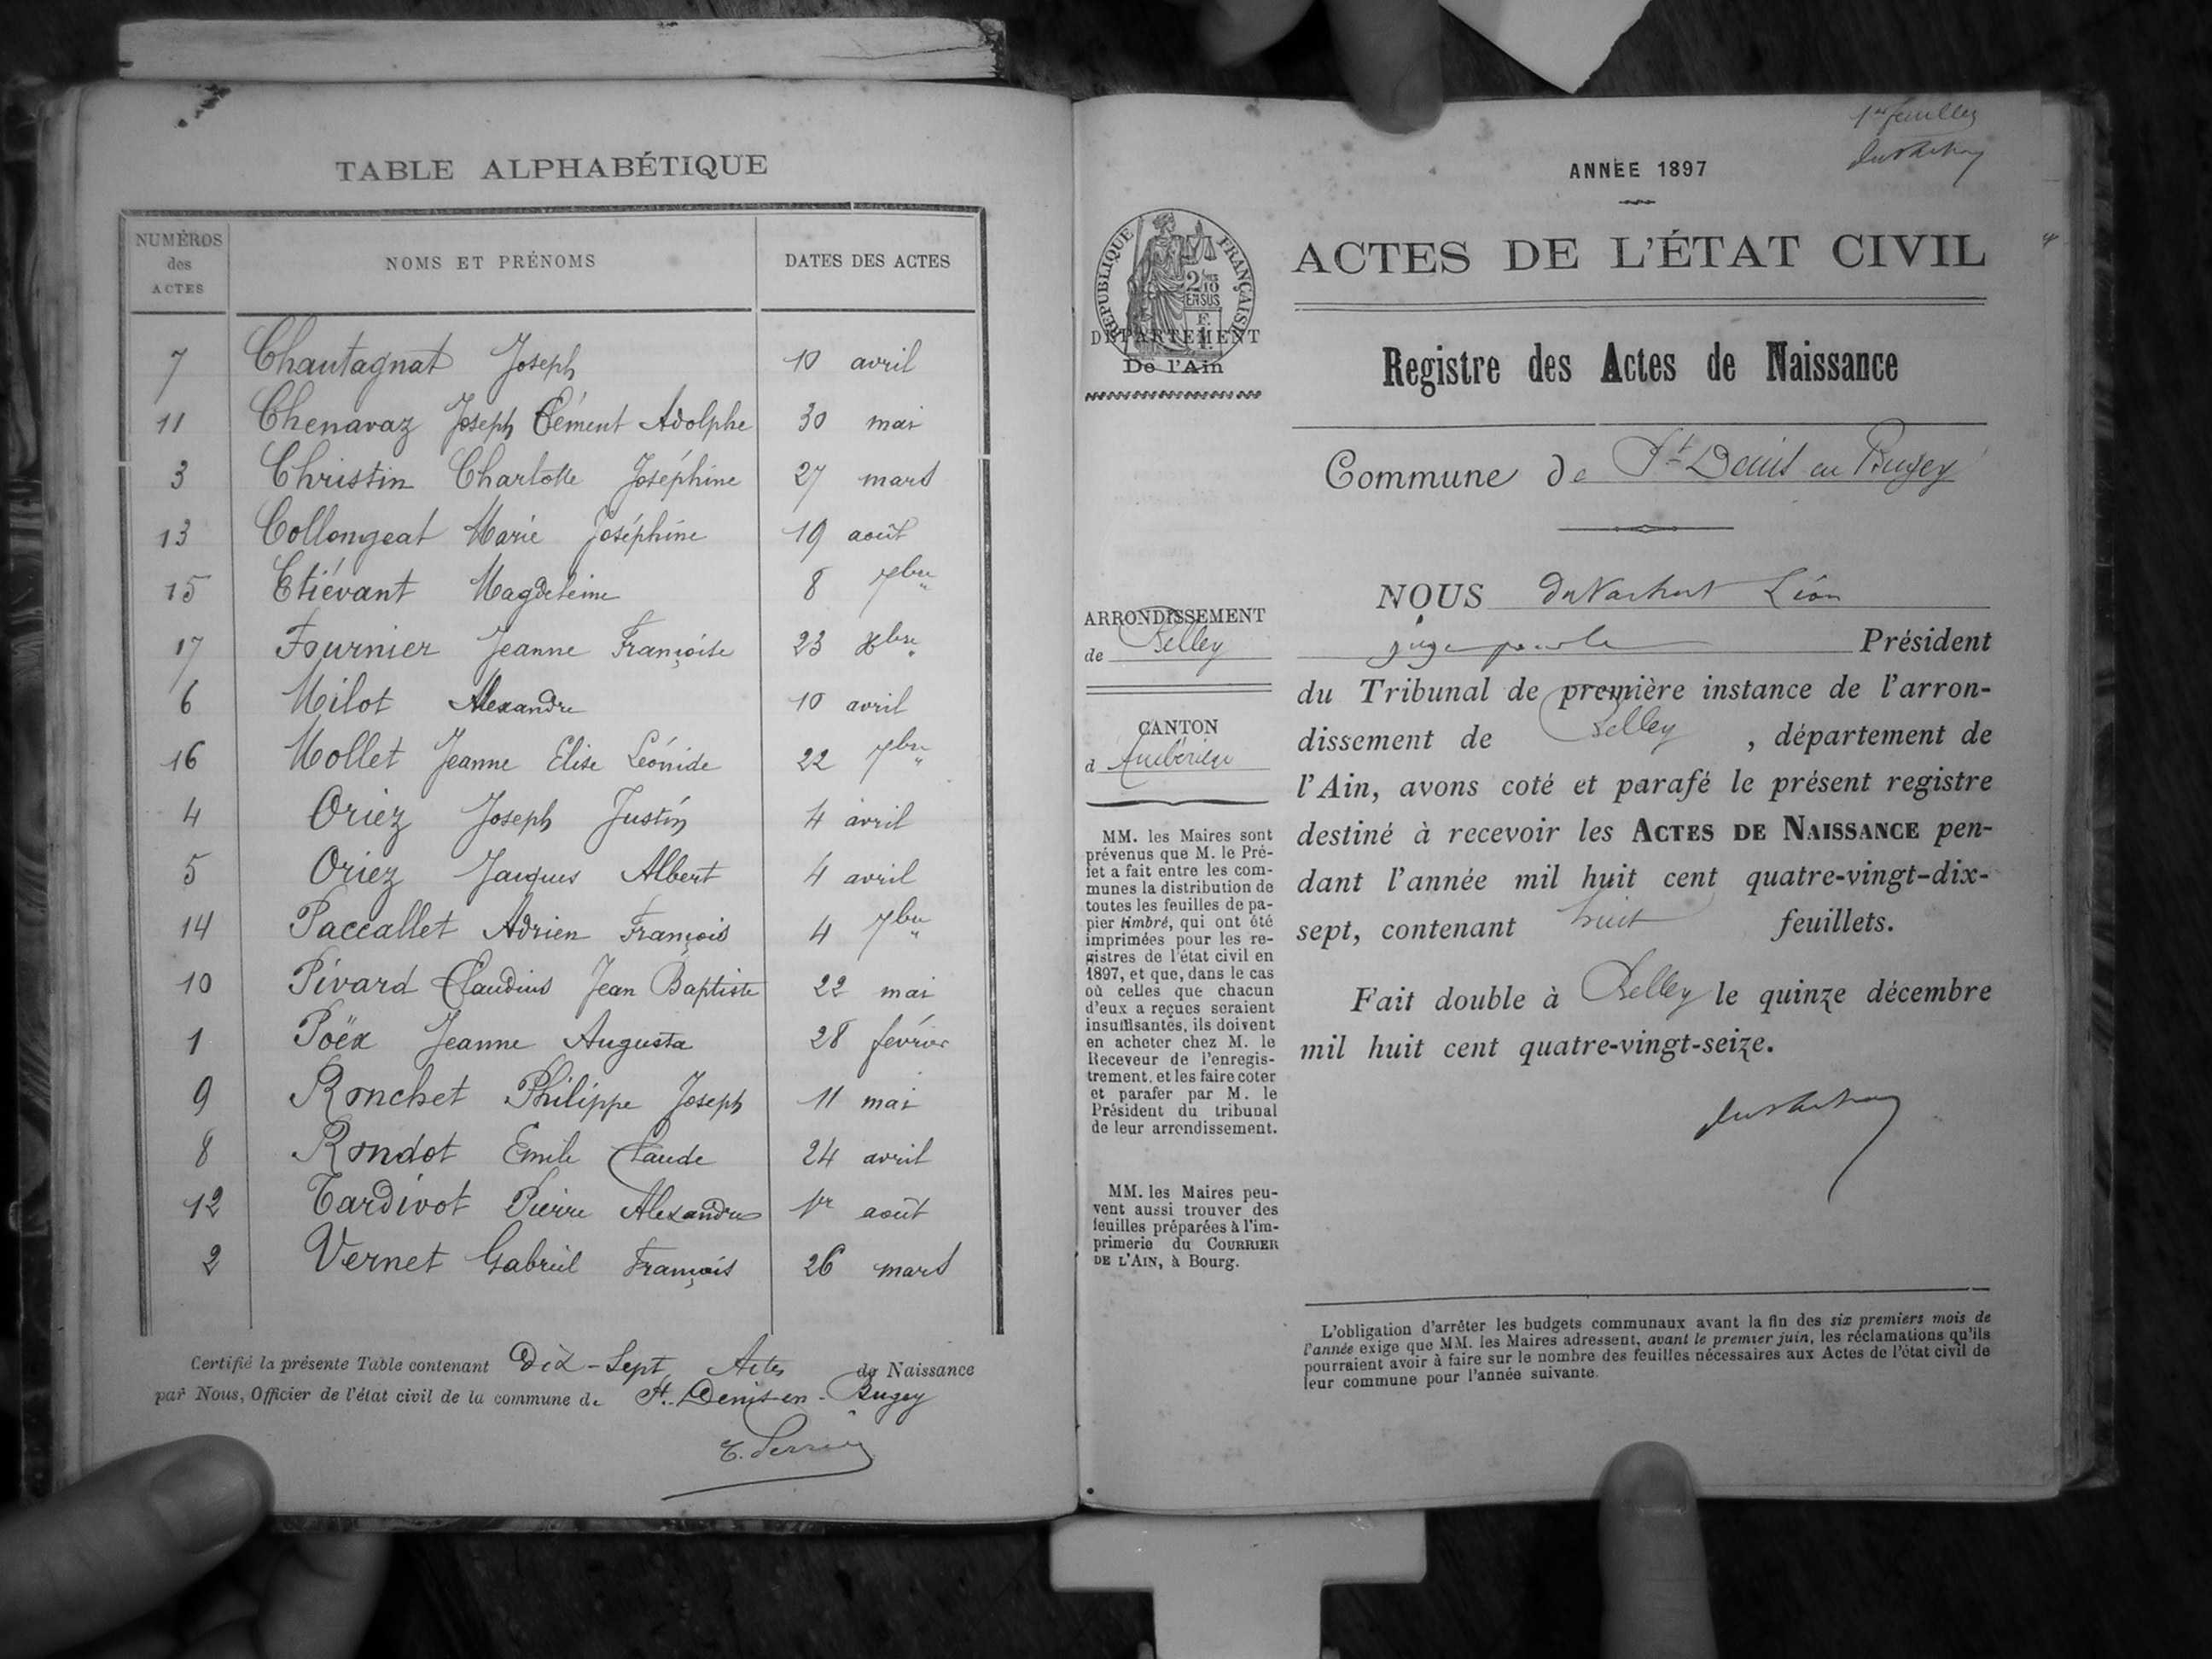 TABLE ALPHABÉTIQUE
NUMÉROS des ACTES
NOMS ET PRÉNOMS
DATES DES ACTES
7 Chautagnat Joseph 10 avril
11 Chenavaz Joseph Clément Adolphe 30 mai
3 Christin Charlotte Joséphine 27 mars
13 Collongeat Marie Joséphine 19 août
15 Etiévant Magdeleine 8 7bre
17 Fournier Jeanne Françoise 23 xbre
6 Milot Alexandre 10 avril
16 Mollet Jeanne Elise Léonide 22 7bre
4 Oriez Joseph Justin 4 avril
5 Oriez Jacques Albert 4 avril
14 Paccallet Adrien François 4 7bre
10 Pivard Claudius Jean Baptiste 22 mai
1 Poëx Jeanne Augusta 28 février
9 Ronchet Philippe Joseph 11 mai
8 Rondot Emile Claude 24 avril
12 Tardivot Pierre Alexandre 1er août
2 Vernet Gabriel François 26 mars
Certifié la présente Table contenant Dix-Sept Actes de Naissance
par Nous, Officier de l'état civil de la commune de St. Denis-en-Bugey
ANNÉE 1897
RÉPUBLIQUE FRANÇAISE
2/10 EN SUS
F. 1.
DÉPARTEMENT
De l'Ain
ACTES DE L'ÉTAT CIVIL
Registre des Actes de Naissance
Commune de St Denis en Bugey
ARRONDISSEMENT
de Belley
CANTON
d Ambérieu
MM. les Maires sont
prévenus que M. le Pré-
fet a fait entre les com-
munes la distribution de
toutes les feuilles de pa-
pier timbré, qui ont été
imprimées pour les re-
gistres de l'état civil en
1897, et que, dans le cas
où celles que chacun
d'eux a reçues seraient
insuffisantes, ils doivent
en acheter chez M. le
Receveur de l'enregis-
trement, et les faire coter
et parafer par M. le
Président du tribunal
de leur arrondissement.
MM. les Maires peu-
vent aussi trouver des
feuilles préparées à l'im-
primerie du COURRIER
DE L'AIN, à Bourg.
NOUS Léon
Président
du Tribunal de première instance de l'arron-
dissement de Belley, département de
l'Ain, avons coté et parafé le présent registre
destiné à recevoir les ACTES DE NAISSANCE pen-
dant l'année mil huit cent quatre-vingt-dix-
sept, contenant huit feuillets.
Fait double à Belley le quinze décembre
mil huit cent quatre-vingt-seize.
L'obligation d'arrêter les budgets communaux avant la fin des six premiers mois de
l'année exige que MM. les Maires adressent, avant le premier juin, les réclamations qu'ils
pourraient avoir à faire sur le nombre des feuilles nécessaires aux Actes de l'état civil de
leur commune pour l'année suivante.